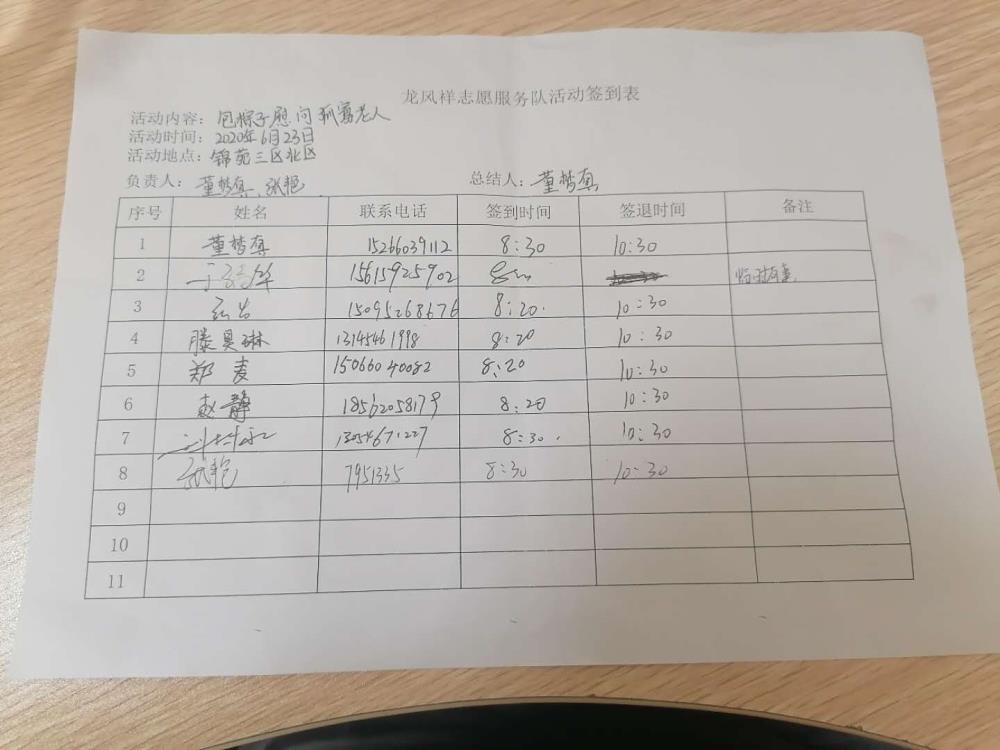 龙风祥志愿服务队活动签到表
活动内容：包粽子慰问孤寡老人
活动时间：2020年6月23日
活动地点：锦苑三区北区
负责人：董梦真、张艳 总结人：董梦真
序号 姓名 联系电话 签到时间 签退时间 备注
1 董梦真 15266039112 8:30 10:30
2 15615925902 临时有事
3 15095268676 8:20 10:30
4 滕昊琳 13145461998 8:20 10:30
5 郑麦 15066040082 8:20 10:30
6 赵静 18562058179 8:20 10:30
7 13054671227 8:30 10:30
8 张艳 7951335 8:30 10:30
9
10
11